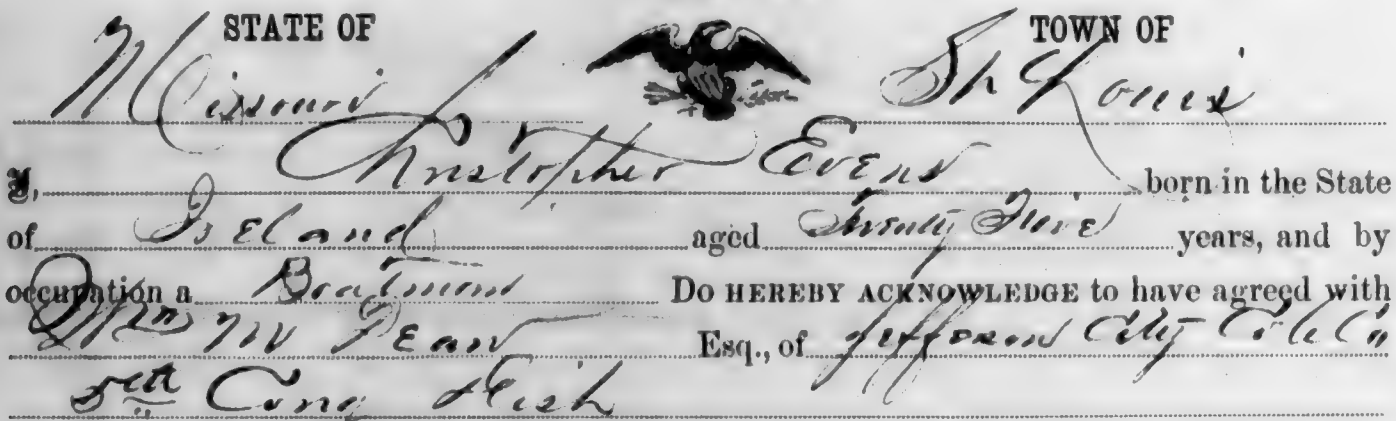 STATE OF TOWN OF
Missouri St Louis
I, Christopher Evens born in the State
of Ireland aged Twenty Five years, and by
occupation a Boatman Do HEREBY ACKNOWLEDGE to have agreed with
Wm W Dean Esq., of Jefferson City Cole Co
5th Cong Dist